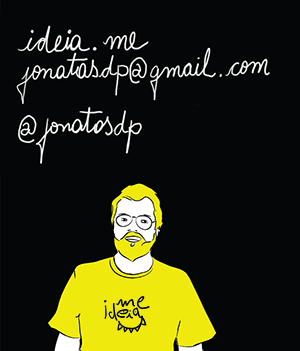 ideia.me
jonatasdp@gmail.com
@jonatasdp
me
ideia